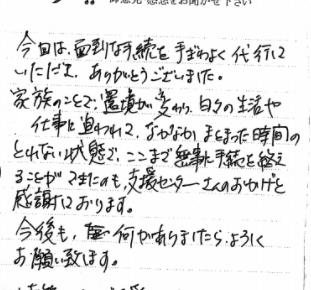 ご意見・ご感想をお聞かせ下さい
今回は、面倒な手続を手ぎわよく代行して
いただき、ありがとうございました。
家族のことで、環境が変わり、日々の生活や
仕事に追われて、なかなかまとまった時間の
とれない状態で、ここまで無事に手続を終え
ることができたのも、支援センターさんのおかげと
感謝しております。
今後も、何かありましたら、よろしく
お願い致します。